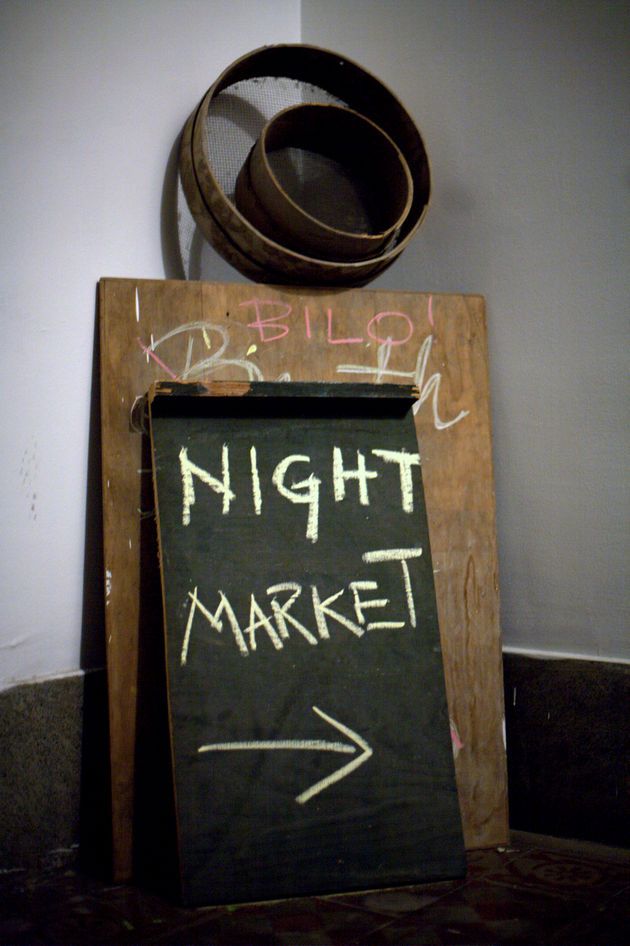 BILO!
NIGHT
MARKET